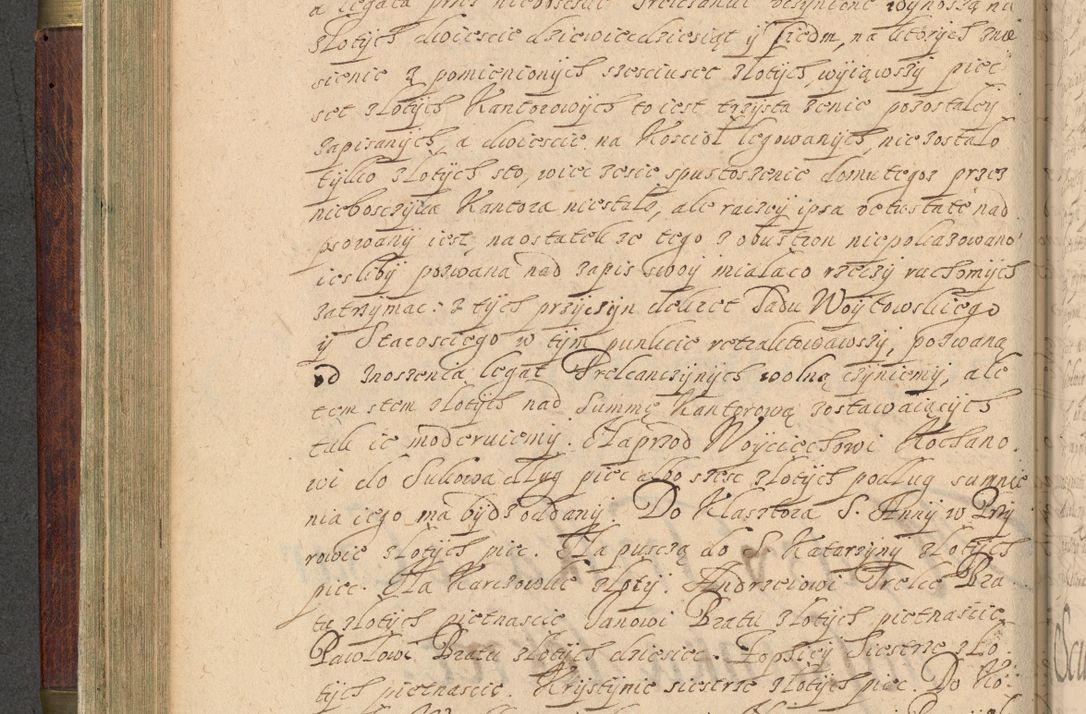 a legata przes nieboscsice Trelcsanke vczynione wynoszą na
złotych dwiescie dziewiedziesiąt y siedm, na ktorych znie
sienie z pomienionych szesciuset złotych, wyiąwszy piec
set złotych Kantorowych to iest trzysta zenie pozostałey
zapisanych, a dwiescie na Kościoł legowanych, nie zostało
tylko złotych sto, wiec zesie spustoszenie domu tegoz przez
nieboszczyka Kantora niestało, ale raczey ipsa vetustate nad
psowany iest, naostatek ze tego z obu stron niepokazowano
iesliby pozwana nad zapis swoy miała co rzeczy ruchomych
zatrzymac: z tych przyczyn dekret Sadu Woytowskiego
y Starosciego w tym punkcie retraktowawszy, pozwaną
od znoszenia legat Trelcanczynych wolną czyniemy, ale
tem stem złotych nad Summę Kantorową zostawaiących
tak ie moderuiemy. Naprzod Woyciechowi Kochano
wi do Sukowa dług piec albo szesc złotych podług sumnie
nia iego ma bydz oddany. Do Klasztora S. Anny w Przy
rowie złotych piec. Na puszcą do S. Katarzyny złotych
piec. Na Karczowke złoty. Andrzeiowi Trelce Bra
tu złotych pietnascie Janowi Bratu złotych pietnascie
Pawłowi Bratu złotych dziesiec. Zophiey Siestrze zło
tych pietnascie. Krystynie siestrze złotych piec. Do Ko